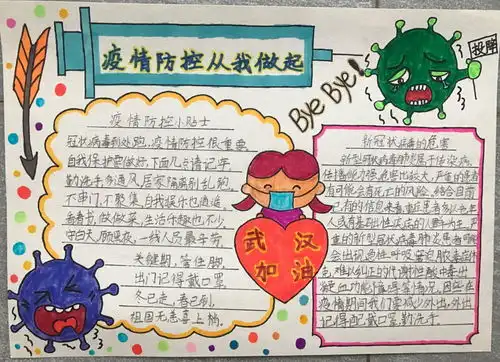 疫情防控从我做起
投降
Bye Bye!
疫情防控小贴士
冠状病毒到处跑,疫情防控很重要
自我保护要做好,下面几点请记牢
勤洗手多通风,居家隔离别乱跑
不串门,不聚集,自我提升也逍遥
看看书,做做菜,生活乐趣也不少
守白天,顾黑夜,一线人员最辛劳
关键期,管住脚
出门记得戴口罩
冬已走,春已到
祖国无恙喜上梢。
武汉
加油
新冠状病毒的危害
新型冠状病毒肺炎属于传染病,
传播能力强,危害比较大,严重的患者
有可能会有死亡的风险,结合目前
已有的信息来看,重症患者多以老年
人或有基础性疾病的人群为主,严
重的新型冠状病毒肺炎患者可能
会出现急性呼吸窘迫脓毒症休
克,难以纠正的代谢性酸中毒出
凝血功能障碍等情况,因此在
疫情期间我们要减少外出,外出
记得配戴口罩,勤洗手。